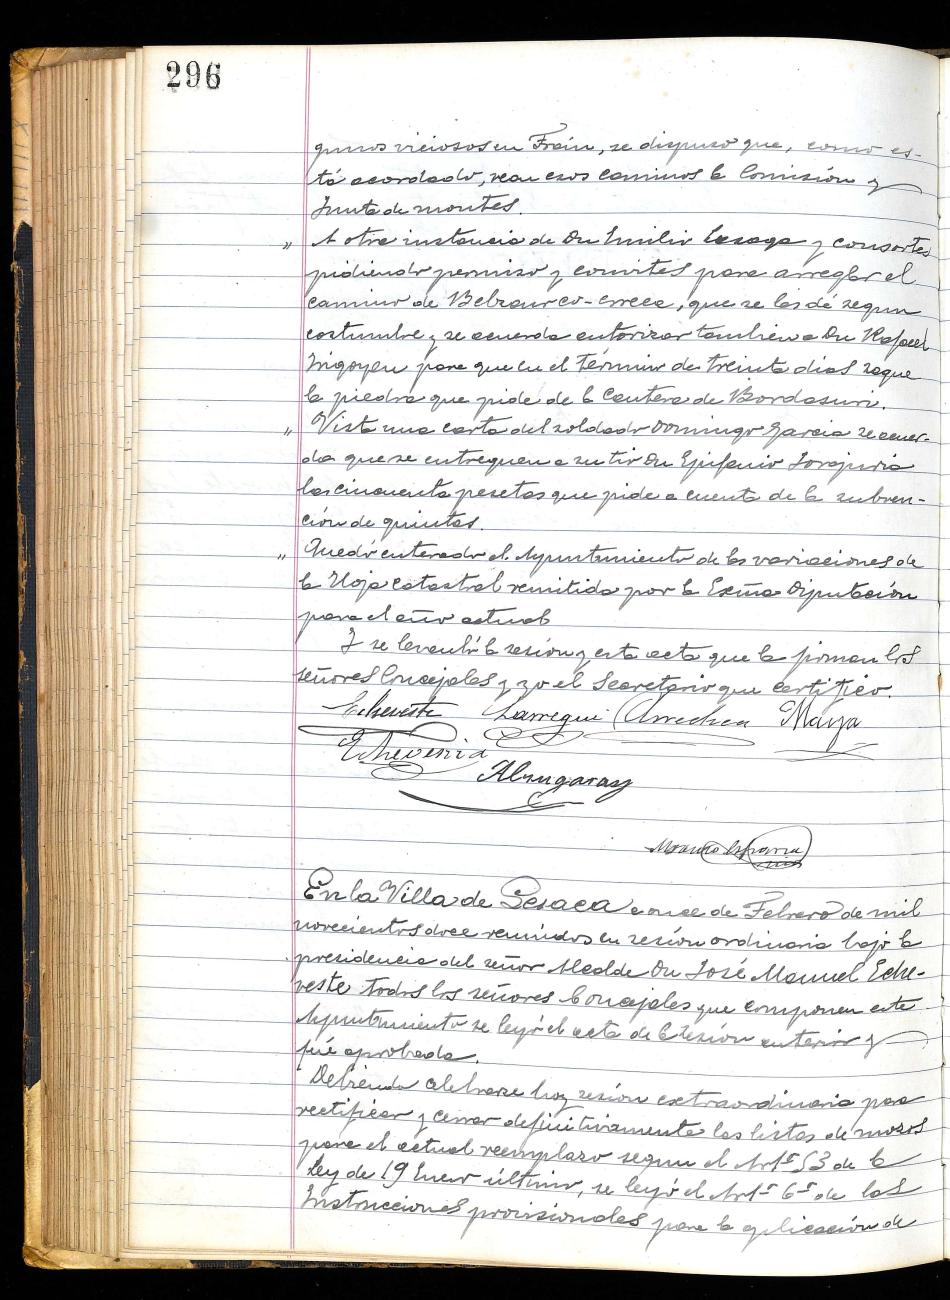 296
gunos viciosos en Frain, se dispuso que, como es-
tá acordado, vean esos caminos la Comisión y
Junta de montes.
" A otra instancia de Dn Emilio Lasaga y consortes
pidiendo permiso y convites para arreglar el
camino de Belzaurco-erreca, que se les dé segun
costumbre y se acuerda autorizar tambien a Dn Rafael
Irigoyen para que en el término de treinta dias saque
la piedra que pide de la Cantera de Bordasuri.
" Vista una carta del soldado Domingo Garcia se acuer-
da que se entreguen a su tio Dn Epifanio
las cincuenta pesetas que pide a cuenta de la subven-
ción de quintas.
" Quedó enterado el Ayuntamiento de las variaciones de
la Hoja catastral remitida por la Exma Diputación
para el año actual
Y se levantó la sesión y esta acta que la firman los
señores Concejales y yo el Secretario que certifico.
Echeveste Larregui Arrechea Maya
Echeverria
Alzugaray
En la Villa de Lesaca a once de Febrero de mil
novecientos doce reunidos en sesión ordinaria bajo la
presidencia del señor Alcalde Dn José Manuel Eche-
veste todos los señores Concejales que componen este
Ayuntamiento se leyó el acta de la sesión anterior y
fué aprobada.
Debiendo celebrarse hoy sesión extraordinaria para
rectificar y cerrar definitivamente las listas de mozos
para el actual reemplazo segun el Artº 53 de la
Ley de 19 Enero último, se leyó el Artº 6º de las
Instrucciones provisionales para la aplicación de